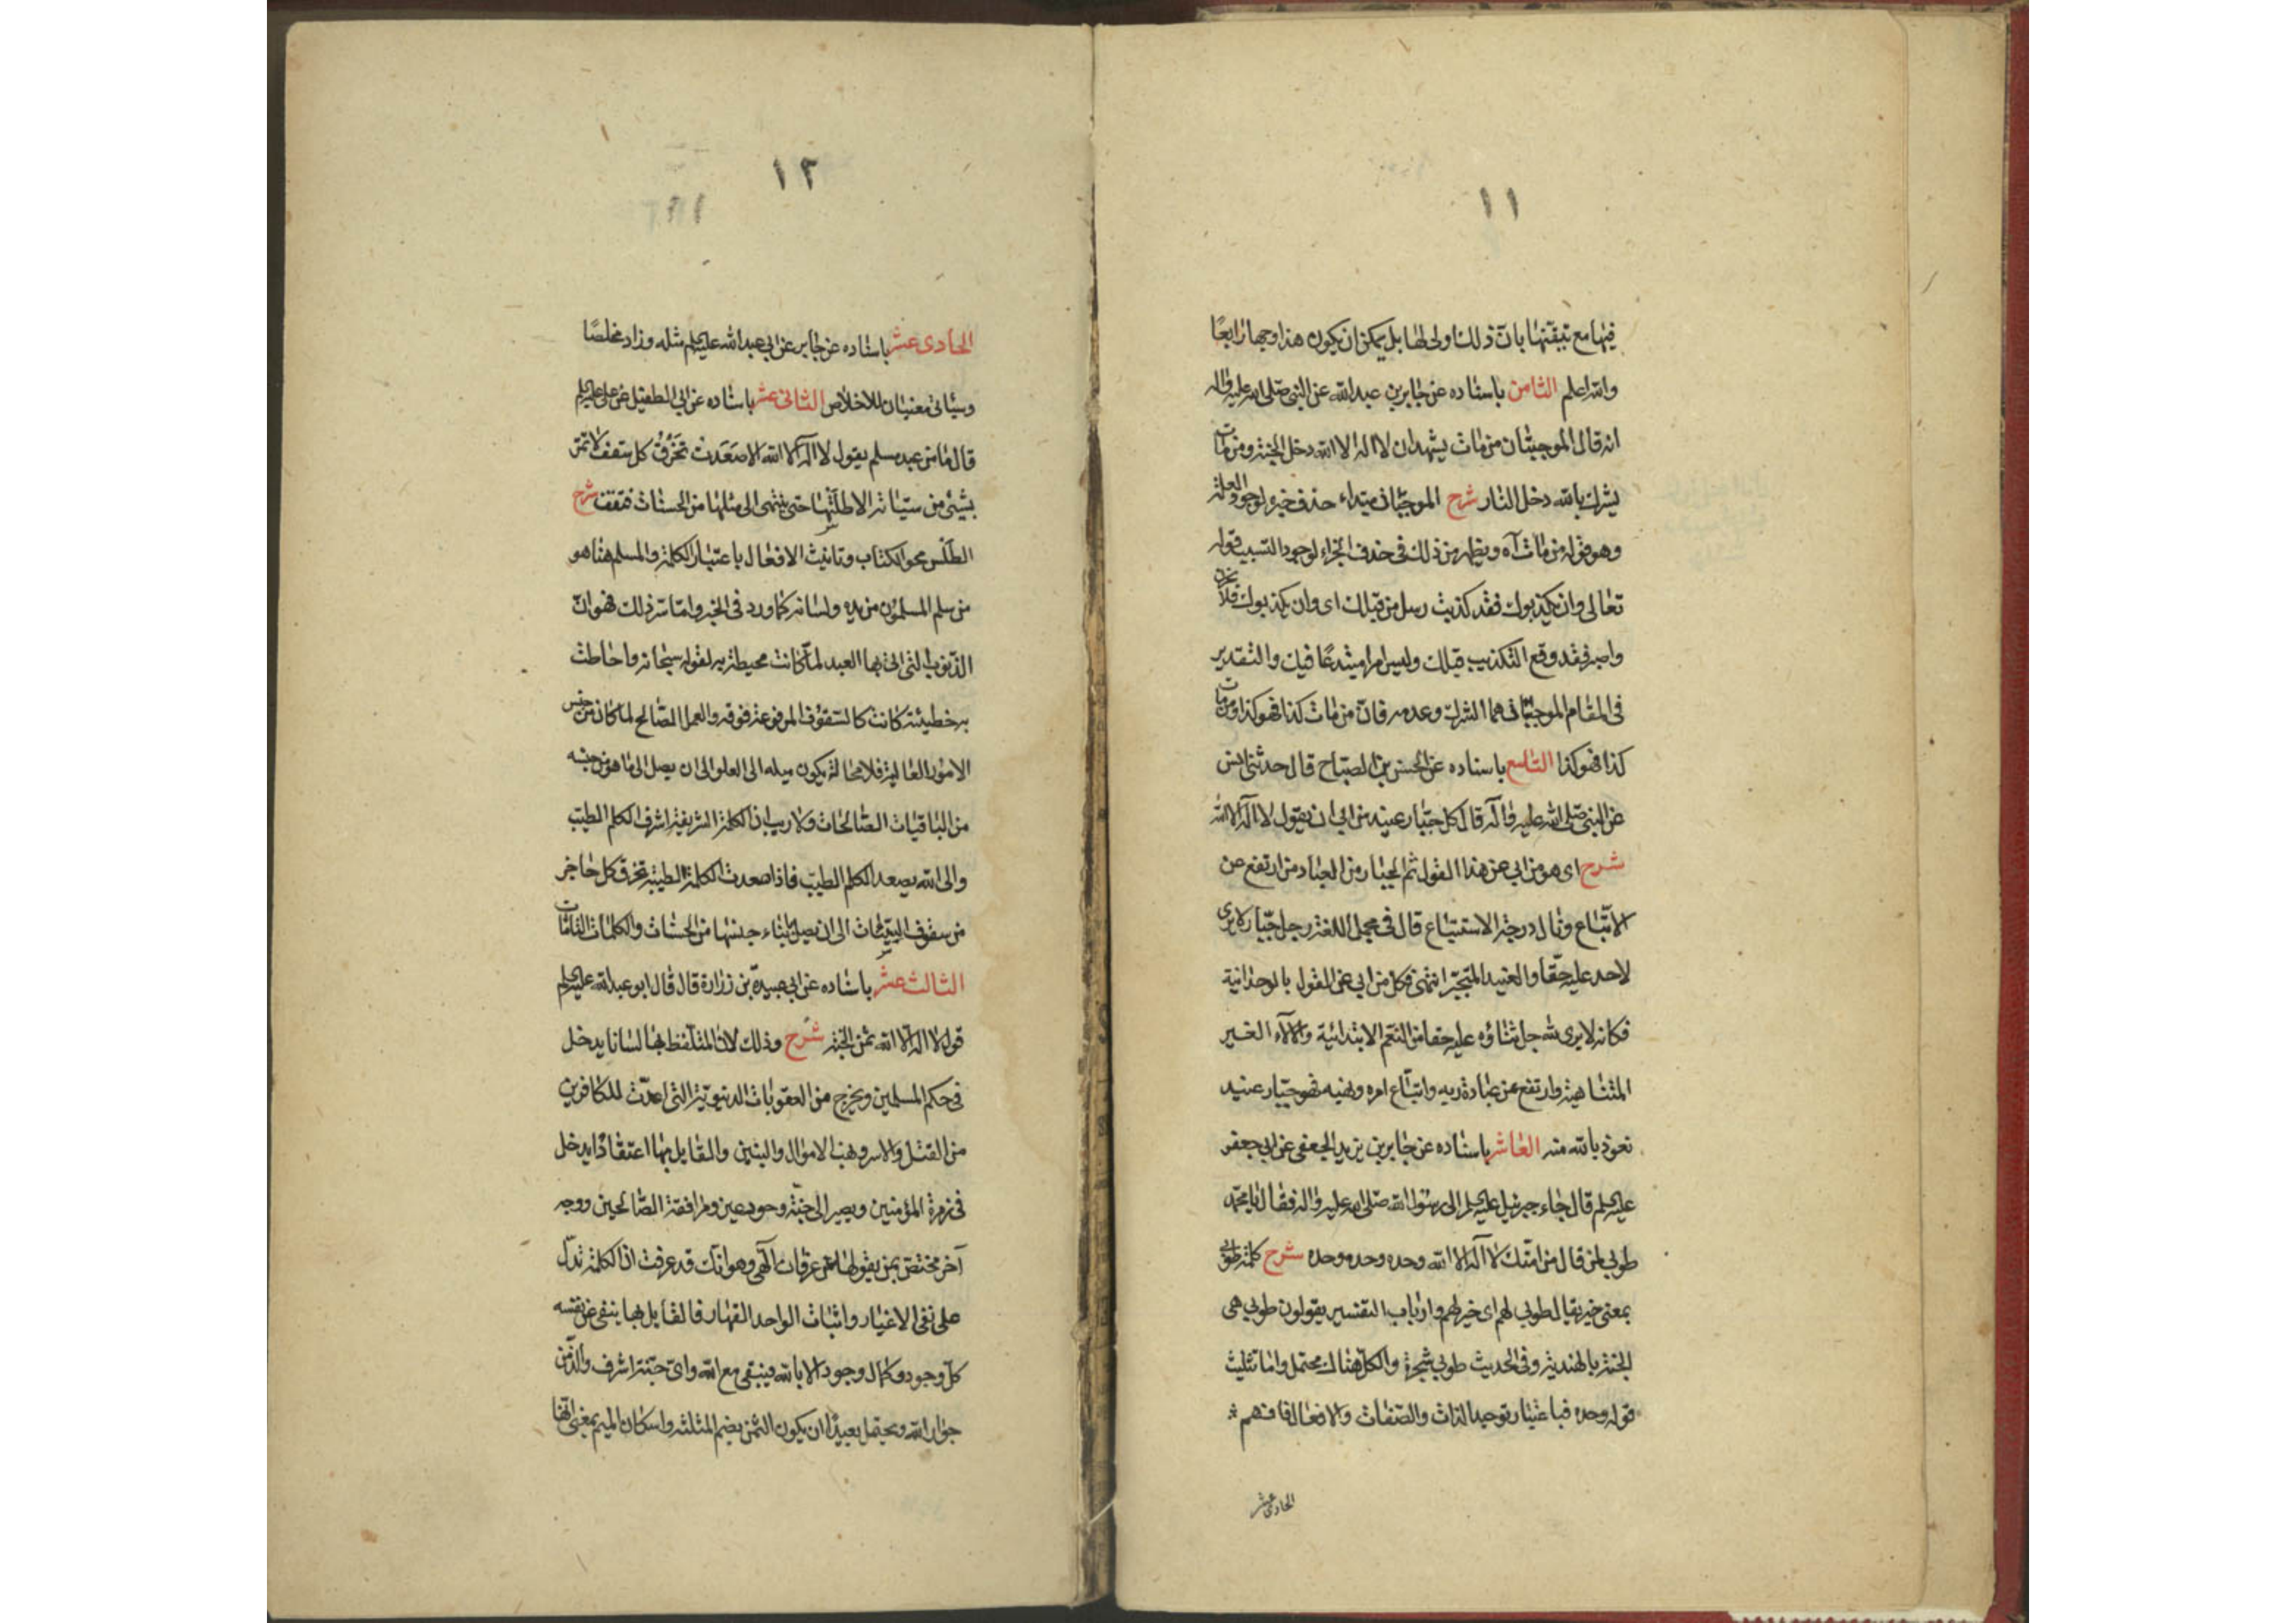 ١١
فيها مع تيقنها بان ذلك اولى لها بل يمكن ان يكون هذا وجها رابعًا
والله اعلم الثامن باسناده عن جابر بن عبد الله عن النبي صلى الله عليه واله
انه قال الموجبتان من مات يشهد ان لا اله الا الله دخل الجنة ومن مات
يشرك بالله دخل النار شرح الموجبتان مبتداء حذف خبره لوجود العلة
وهو قوله من مات آه ويظهر من ذلك في حذف الجزاء لوجود السبب قوله
تعالى وان يكذبوك فقد كذبت رسل من قبلك اى وان يكذبوك فلا تحزن
واصبر فقد وقع التكذيب قبلك وليس امرا مبتدعًا فيك والتقدير
في المقام الموجبتان هما الشرك وعدمه فان من مات كذا فهو كذا ومن مات
كذا فهو كذا التاسع باسناده عن الحسن بن الصباح قال حدثنى انس
عن النبي صلى الله عليه وآله قال كل جبار عنيد من ابى ان يقول لا اله الا الله
شرح اى هو من ابى عن هذا القول ثم الجبار من العباد من ارتفع عن
الاتباع ونال درجة الاستتباع قال في مجمل اللغة رجل جبار لا يرى
لاحد عليه حقا والعنيد المتجبر انتهى فكل من ابى عن القول بالوحدانية
فكانه لا يرى لله جل ثناؤه عليه حقا من النعم الابتدائية والآلاء الغير
المتناهية وارتفع عن عبادة ربه واتباع امره ونهيه فهو جبار عنيد
نعوذ بالله منه العاشر باسناده عن جابر بن يزيد الجعفى عن ابى جعفر
عليه السلم قال جاء جبرئيل عليه السلم الى رسول الله صلى الله عليه واله فقال يا محمد
طوبى لمن قال من امتك لا اله الا الله وحده وحده وحده شرح كلمة طوبى
بمعنى خير يقال طوبى لهم اى خير لهم وارباب التفسير يقولون طوبى هى
الجنة بالهندية وفي الحديث طوبى شجرة والكل هناك محتمل واما تثليث
قوله وحده فباعتبار توحيد الذات والصفات والافعال فافهم
الحادى عشر
١٢
١٢
الحادى عشر باسناده عن جابر عن ابى عبد الله عليه السلم مثله وزاد مخلصًا
وسيأتى معنيان للاخلاص الثانى عشر باسناده عن ابى الطفيل عن على عليه السلم
قال ما من عبد مسلم يقول لا اله الا الله الا صَعَدت تخرُقُ كل سقف لا تمر
بشيئ من سيئاته الا طلستها حتى ينتهى الى مثلها من الحسنات فتقف شرح
الطلس محو الكتاب وتانيث الافعال باعتبار الكلمة والمسلم هنا هو
من سلم المسلمون من يده ولسانه كما ورد في الخبر واما سر ذلك فهو ان
الذنوب التى اتى بها العبد لما كانت محيطة به لقوله سبحانه واحاطت
به خطيئته كانت كالسقوف المرفوعة فوقه والعمل الصالح لما كان من جنس
الامور العالية فلا محالة يكون ميله الى العلو الى ان يصل الى ما هو من جنسه
من الباقيات الصالحات ولا ريب ان الكلمة الشريفة اشرف الكلم الطيب
والى الله يصعد الكلم الطيب فاذا صعدت الكلمة الطيبة تخرق كل حاجز
من سقوف السيئات الى ان يصل ابناء جنسها من الحسنات والكلمات التامات
الثالث عشر باسناده عن ابى عبيدة بن زرارة قال قال ابو عبد الله عليه السلم
قول لا اله الا الله ثمن الجنة شرح وذلك لان المتلفظ بها لسانا يدخل
في حكم المسلمين ويخرج من العقوبات الدنيوية التى اعدت للكافرين
من القتل والاسر ونهب الاموال والبنين والقايل بها اعتقادًا يدخل
في زمرة المؤمنين ويصير الى جنة وحور عين ومرافقة الصالحين ووجه
آخر مختص بمن يقولها عن عرفان الهى وهو انك قد عرفت ان الكلمة تدل
على نفى الاغيار واثبات الواحد القهار فالقايل بها ينفى عن نفسه
كل وجود وكمال وجود الا بالله فيبقى مع الله واى جنة اشرف والذ من
جوار الله ويحتمل بعيدًا ان يكون الثمن بضم المثلثة واسكان الميم بمعنى انها